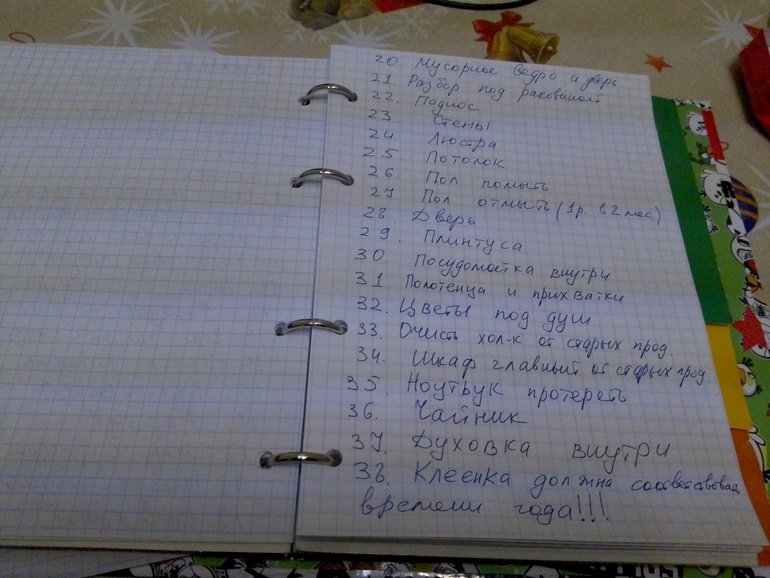 20 Мусорное ведро и дверь
21 Разбор под раковиной
22. Поднос
23 Стены
24 Люстра
25 Потолок
26 Пол помыть
27 Пол отмыть (1р. в 2 мес)
28 Дверь
29. Плинтуса
30. Посудомойка внутри
31. Полотенца и прихватки
32. Цветы под душ
33. Очисть хол-к от старых прод.
34. Шкаф главный от старых прод
35. Ноутбук протереть
36. Чайник
37. Духовка внутри
38. Клеенка должна соответствовать
времени года!!!